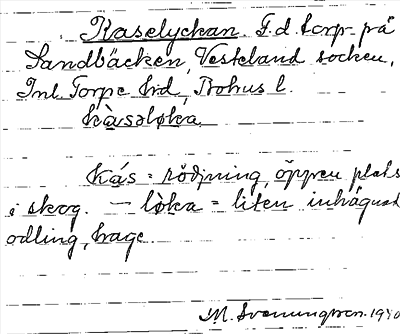 Kaselyckan. F.d. torp på
Sandbäcken, Vesterland socken,
Inl. Torpe hrd, Bohus l.
kàsəløka
Kás = rödjning, öppen plats
i skog. — lòka = liten inhägnad
odling, hage
M. Svenungsson. 1940